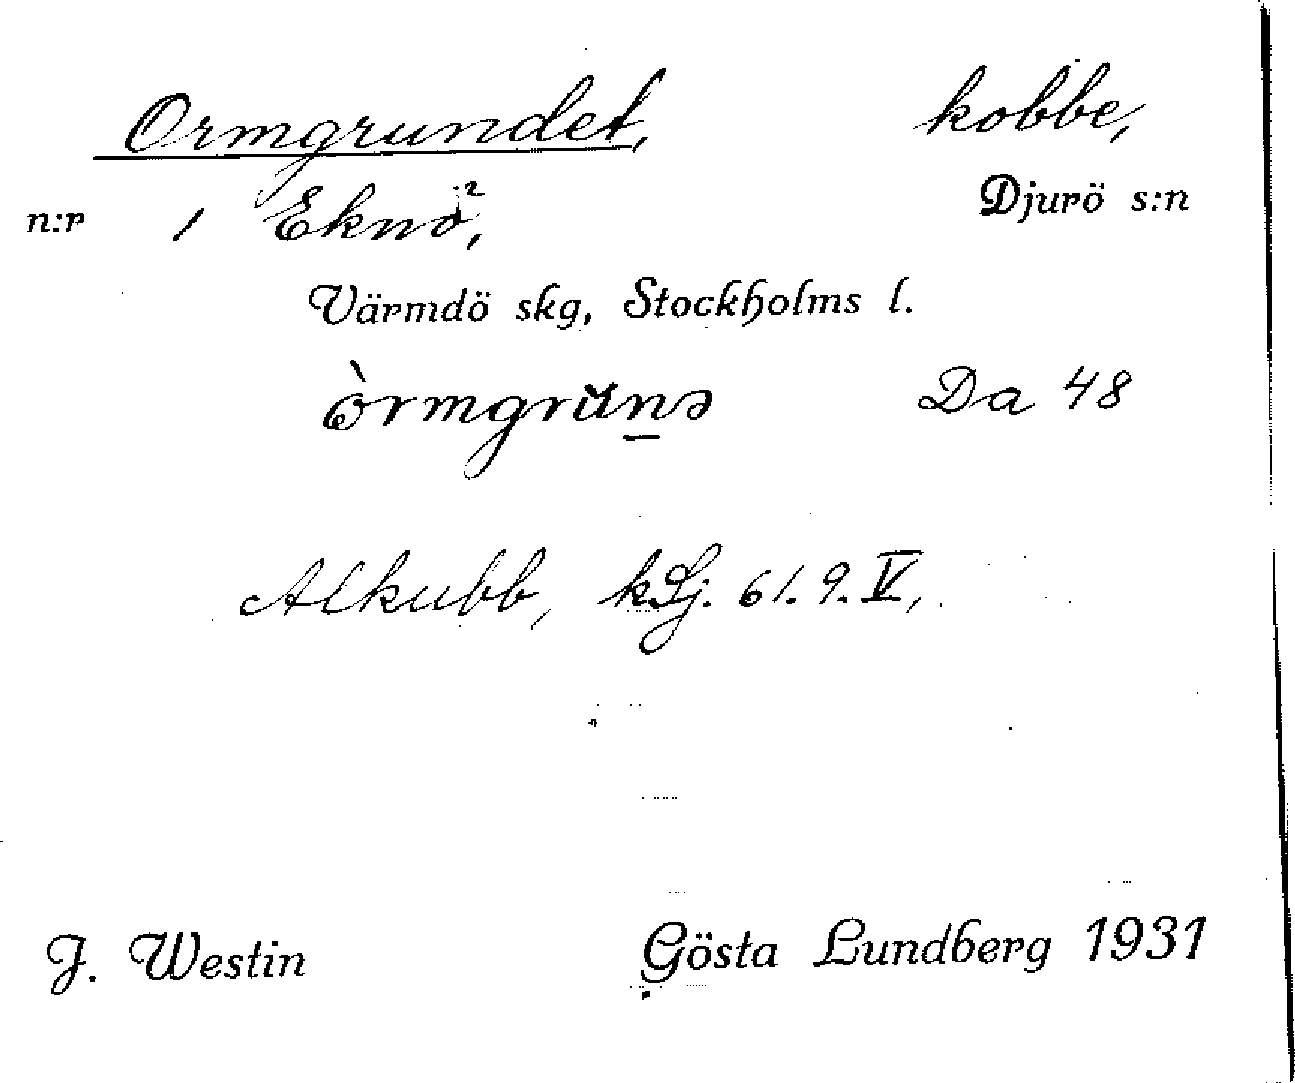 Ormgrundet, kobbe,
n:r 1 Eknö², Djurö s:n
Värmdö skg, Stockholms l.
òrmgrŭn̲ə Da 48
Alkubb, kLj. 61. 9. V,
J. Westin Gösta Lundberg 1931